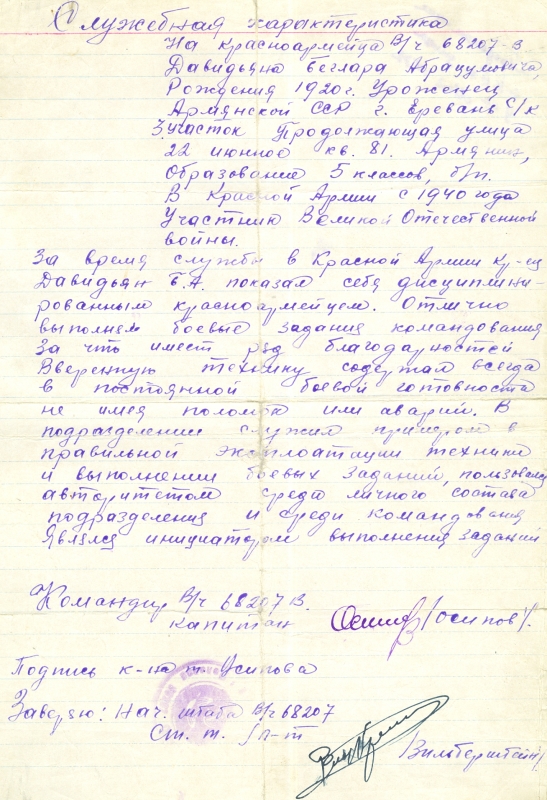 Служебная характеристика
На красноармейца В/ч 68207-В
Давидьяна Беглара Абрацумовича,
Рождения 1920 г. Уроженец
Армянской ССР г. Еревань с/к
3 участок Продолжающая улица
22 июнное кв. 81. Армянин,
Образование 5 классов, б/п.
В Красной Армии с 1940 года
Участник Великой Отечественной
войны.
За время службы в Красной Армии кр-ец
Давидьян Б.А. показал себя дисциплини-
рованным красноармейцем. Отлично
выполнял боевые задания командования
За что имеет ряд благодарностей
Вверенную технику содержал всегда
в постоянной боевой готовноста
не имея поломок или аварий. В
подразделении служил примером в
правильной эксплоатации техники
и выполнении боевых заданий, пользовался
авторитетом среди личного состава
подразделения и среди командования
Являлся инициатором выполнения заданий
Командир В/ч 68207 В.
капитан /Осипов/.
Подпись к-на т. Осипова
Заверяю: Нач. штаба В/ч 68207
Ст. т. л-т
/Вильберштейн/